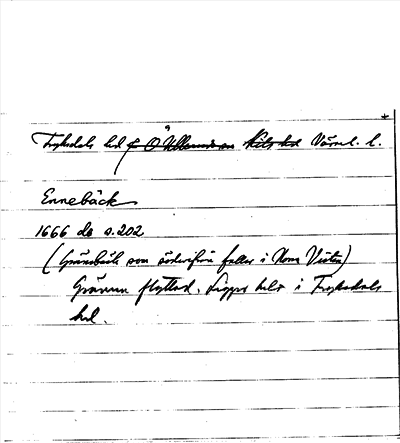 Fryksdals hd f Ö Ullerud sn Kils hd Värml. l.
Ennebäck
1666 db s. 202
(Gränsbäck som söderifrån faller i Norra Visten)
Gränsen flyttad. Ligger helt i Fryksdals
hd.